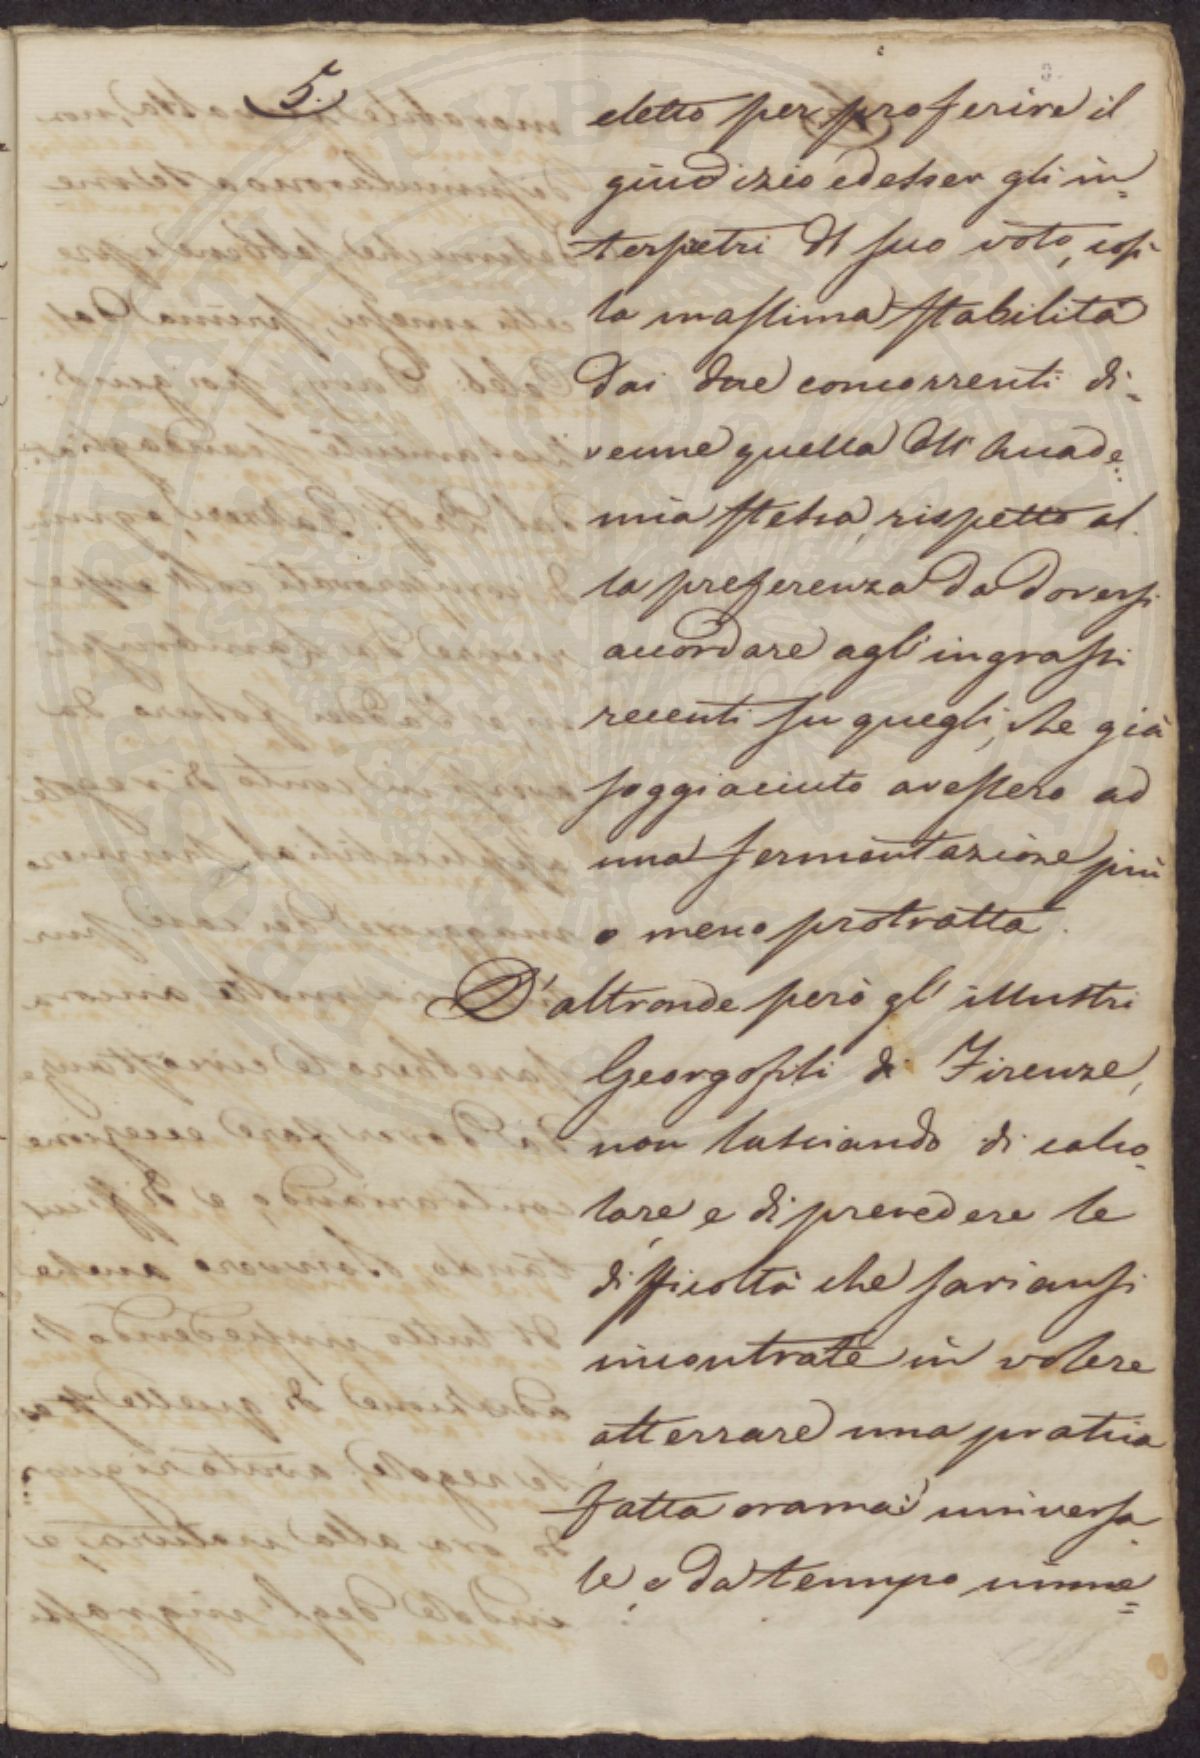 5.
eletto per proferire il
giudizio ed esser gli in=
terpetri di suo voto, così
la massima stabilita
dai due concorrenti di=
venne quella dell' Accade=
mia stessa, rispetto al
la preferenza da doversi
accordare agl' ingrassi
recenti su quegli, che già
soggiaciuto avessero ad
una fermentazione più
o meno protratta.
D'altronde però gl' illustri
Georgofili di Firenze,
non lasciando di calco=
lare, e di prevedere le
difficoltà che sariansi
incontrate in volere
atterrare una pratica
fatta oramai universa=
le, e da tempo imme=